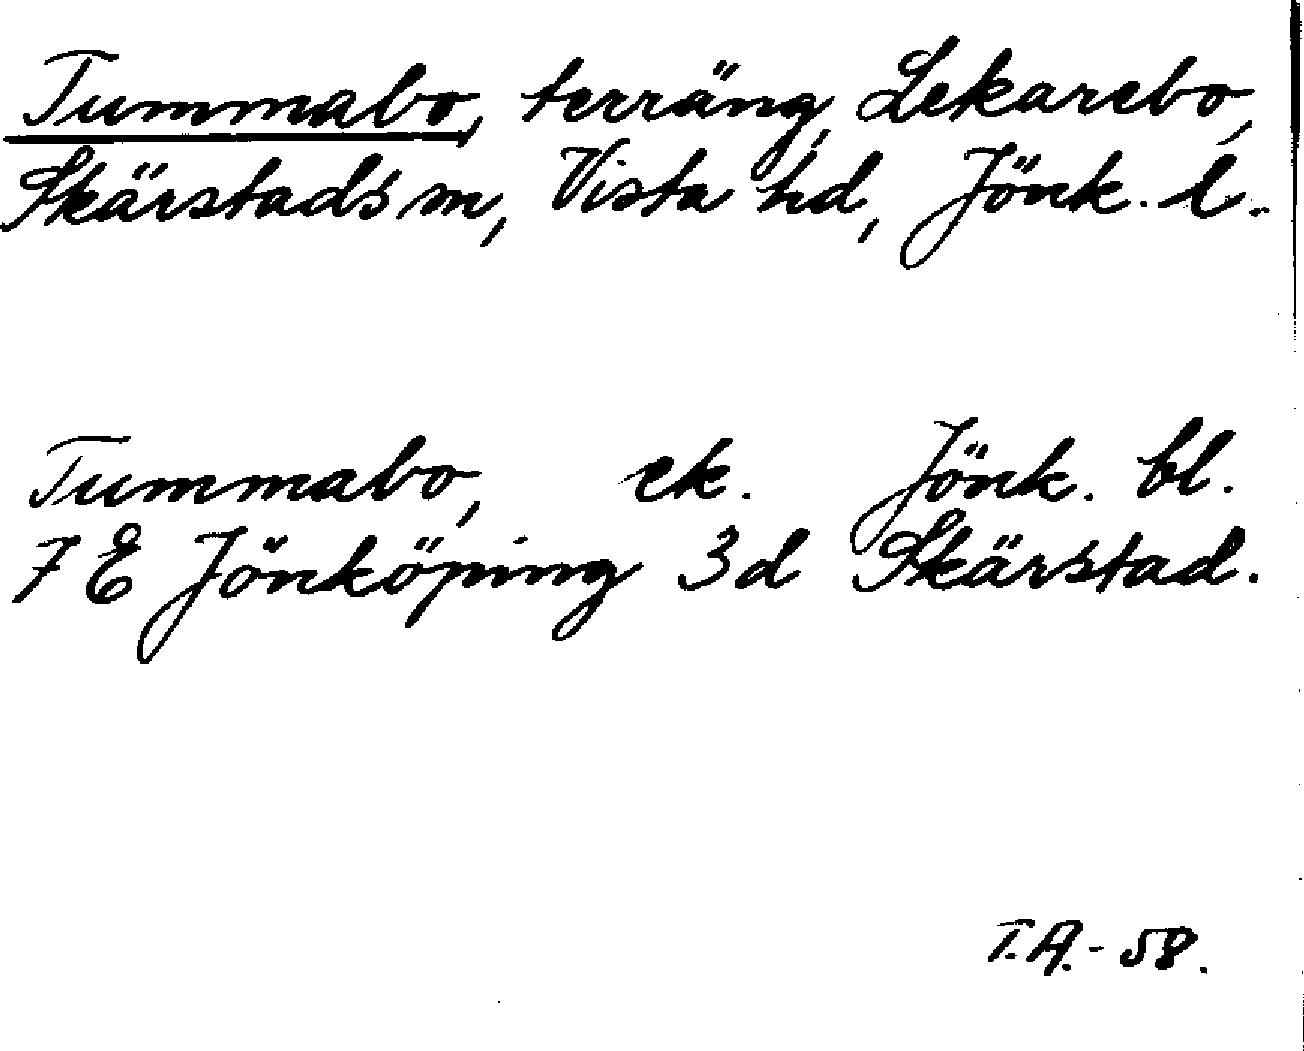 Tummabo, terräng, Lekarebo,
Skärstads sn, Vista hd, Jönk. l.
Tummabo, ek. Jönk. bl.
7 E Jönköping 3d Skärstad.
T.A.- 58.